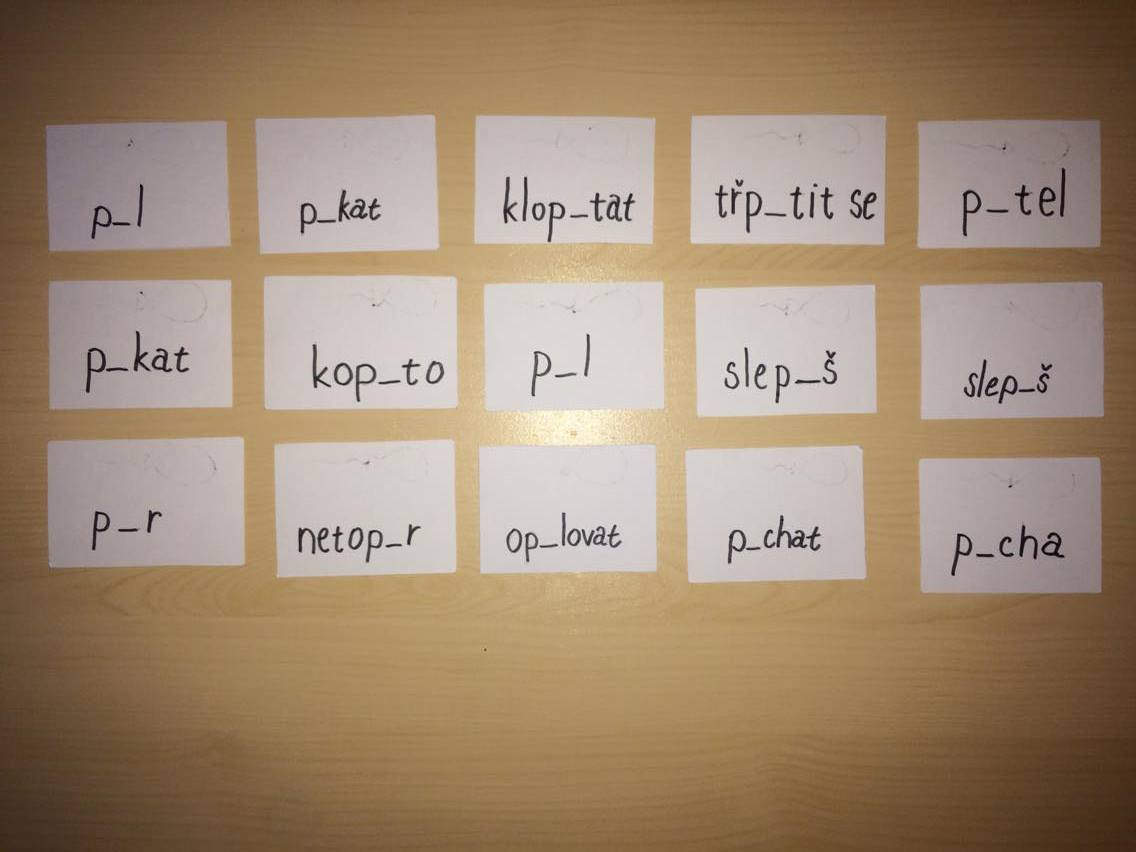 p_l
p_kat
klop_tat
třp_tit se
p_tel
p_kat
kop_to
p_l
slep_š
slep_š
p_r
netop_r
op_lovat
p_chat
p_cha